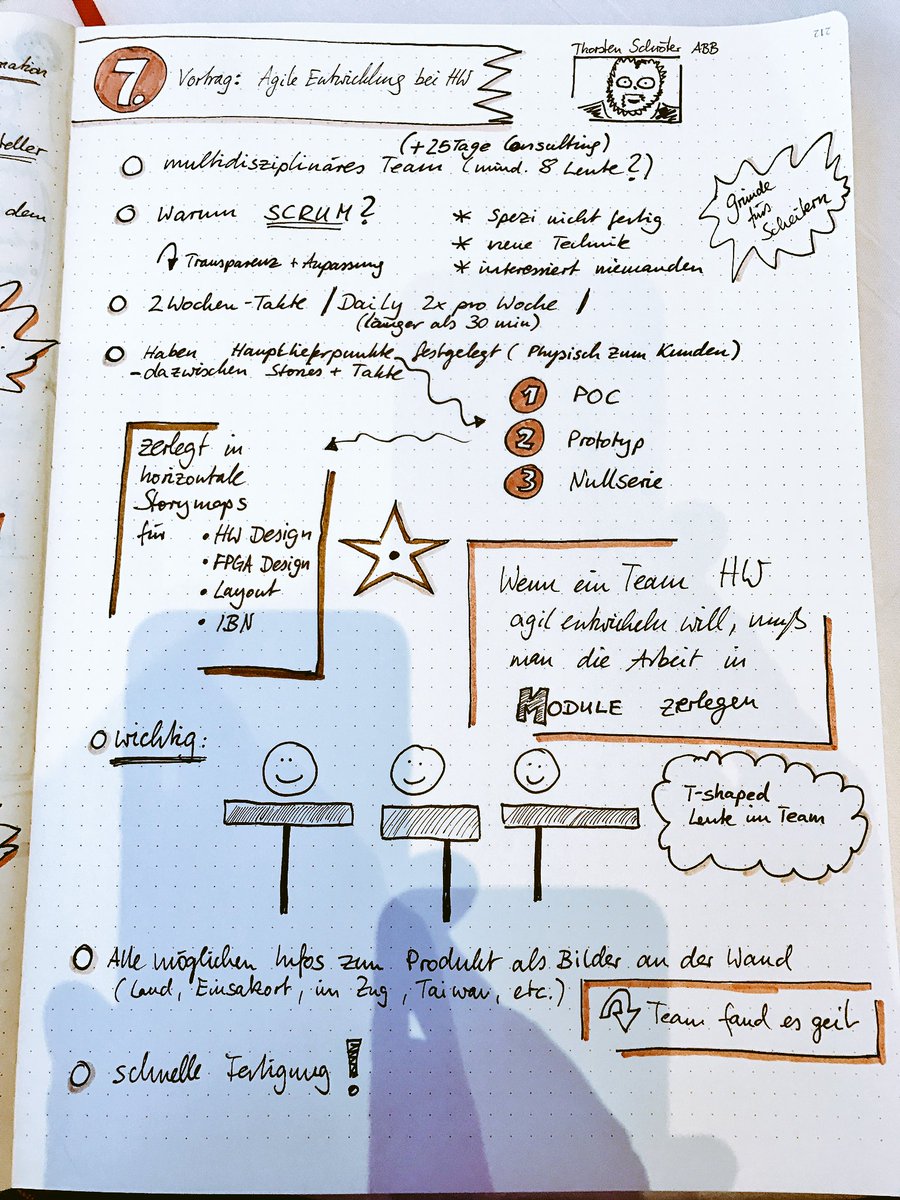 mation
7. Vortrag: Agile Entwicklung bei HW
Thorsten Schröter ABB
212
teller
dem
(+25Tage Consulting)
multidisziplinäres Team (mind. 8 Leute?)
Warum SCRUM?
Transparenz + Anpassung
* Spezi nicht fertig
* neue Technik
* interessiert niemanden
gründe
fürs
Scheitern
2 Wochen-Takte / Daily 2x pro Woche /
(länger als 30 min)
Haben Hauptlieferpunkte festgelegt (Physisch zum Kunden)
- dazwischen Stories + Takte
1 POC
2 Prototyp
3 Nullserie
zerlegt in
horizontale
Storymaps
für • HW Design
• FPGA Design
• Layout
• IBN
Wenn ein Team HW
agil entwickeln will, muß
man die Arbeit in
MODULE zerlegen
wichtig:
T-shaped
Leute im Team
Alle möglichen Infos zum Produkt als Bilder an der Wand
(Land, Einsatzort, im Zug, Taiwan, etc.)
Team fand es geil
schnelle Fertigung!